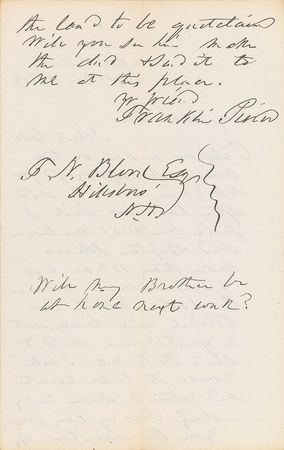 the land to be quitclaim
Will you see him make
the deed & send it to
me at this place.
Yr friend
Franklin Pierce
T. N. Blood Esq
Hillsboro'
N. H.
Will my Brother be
at home next week?